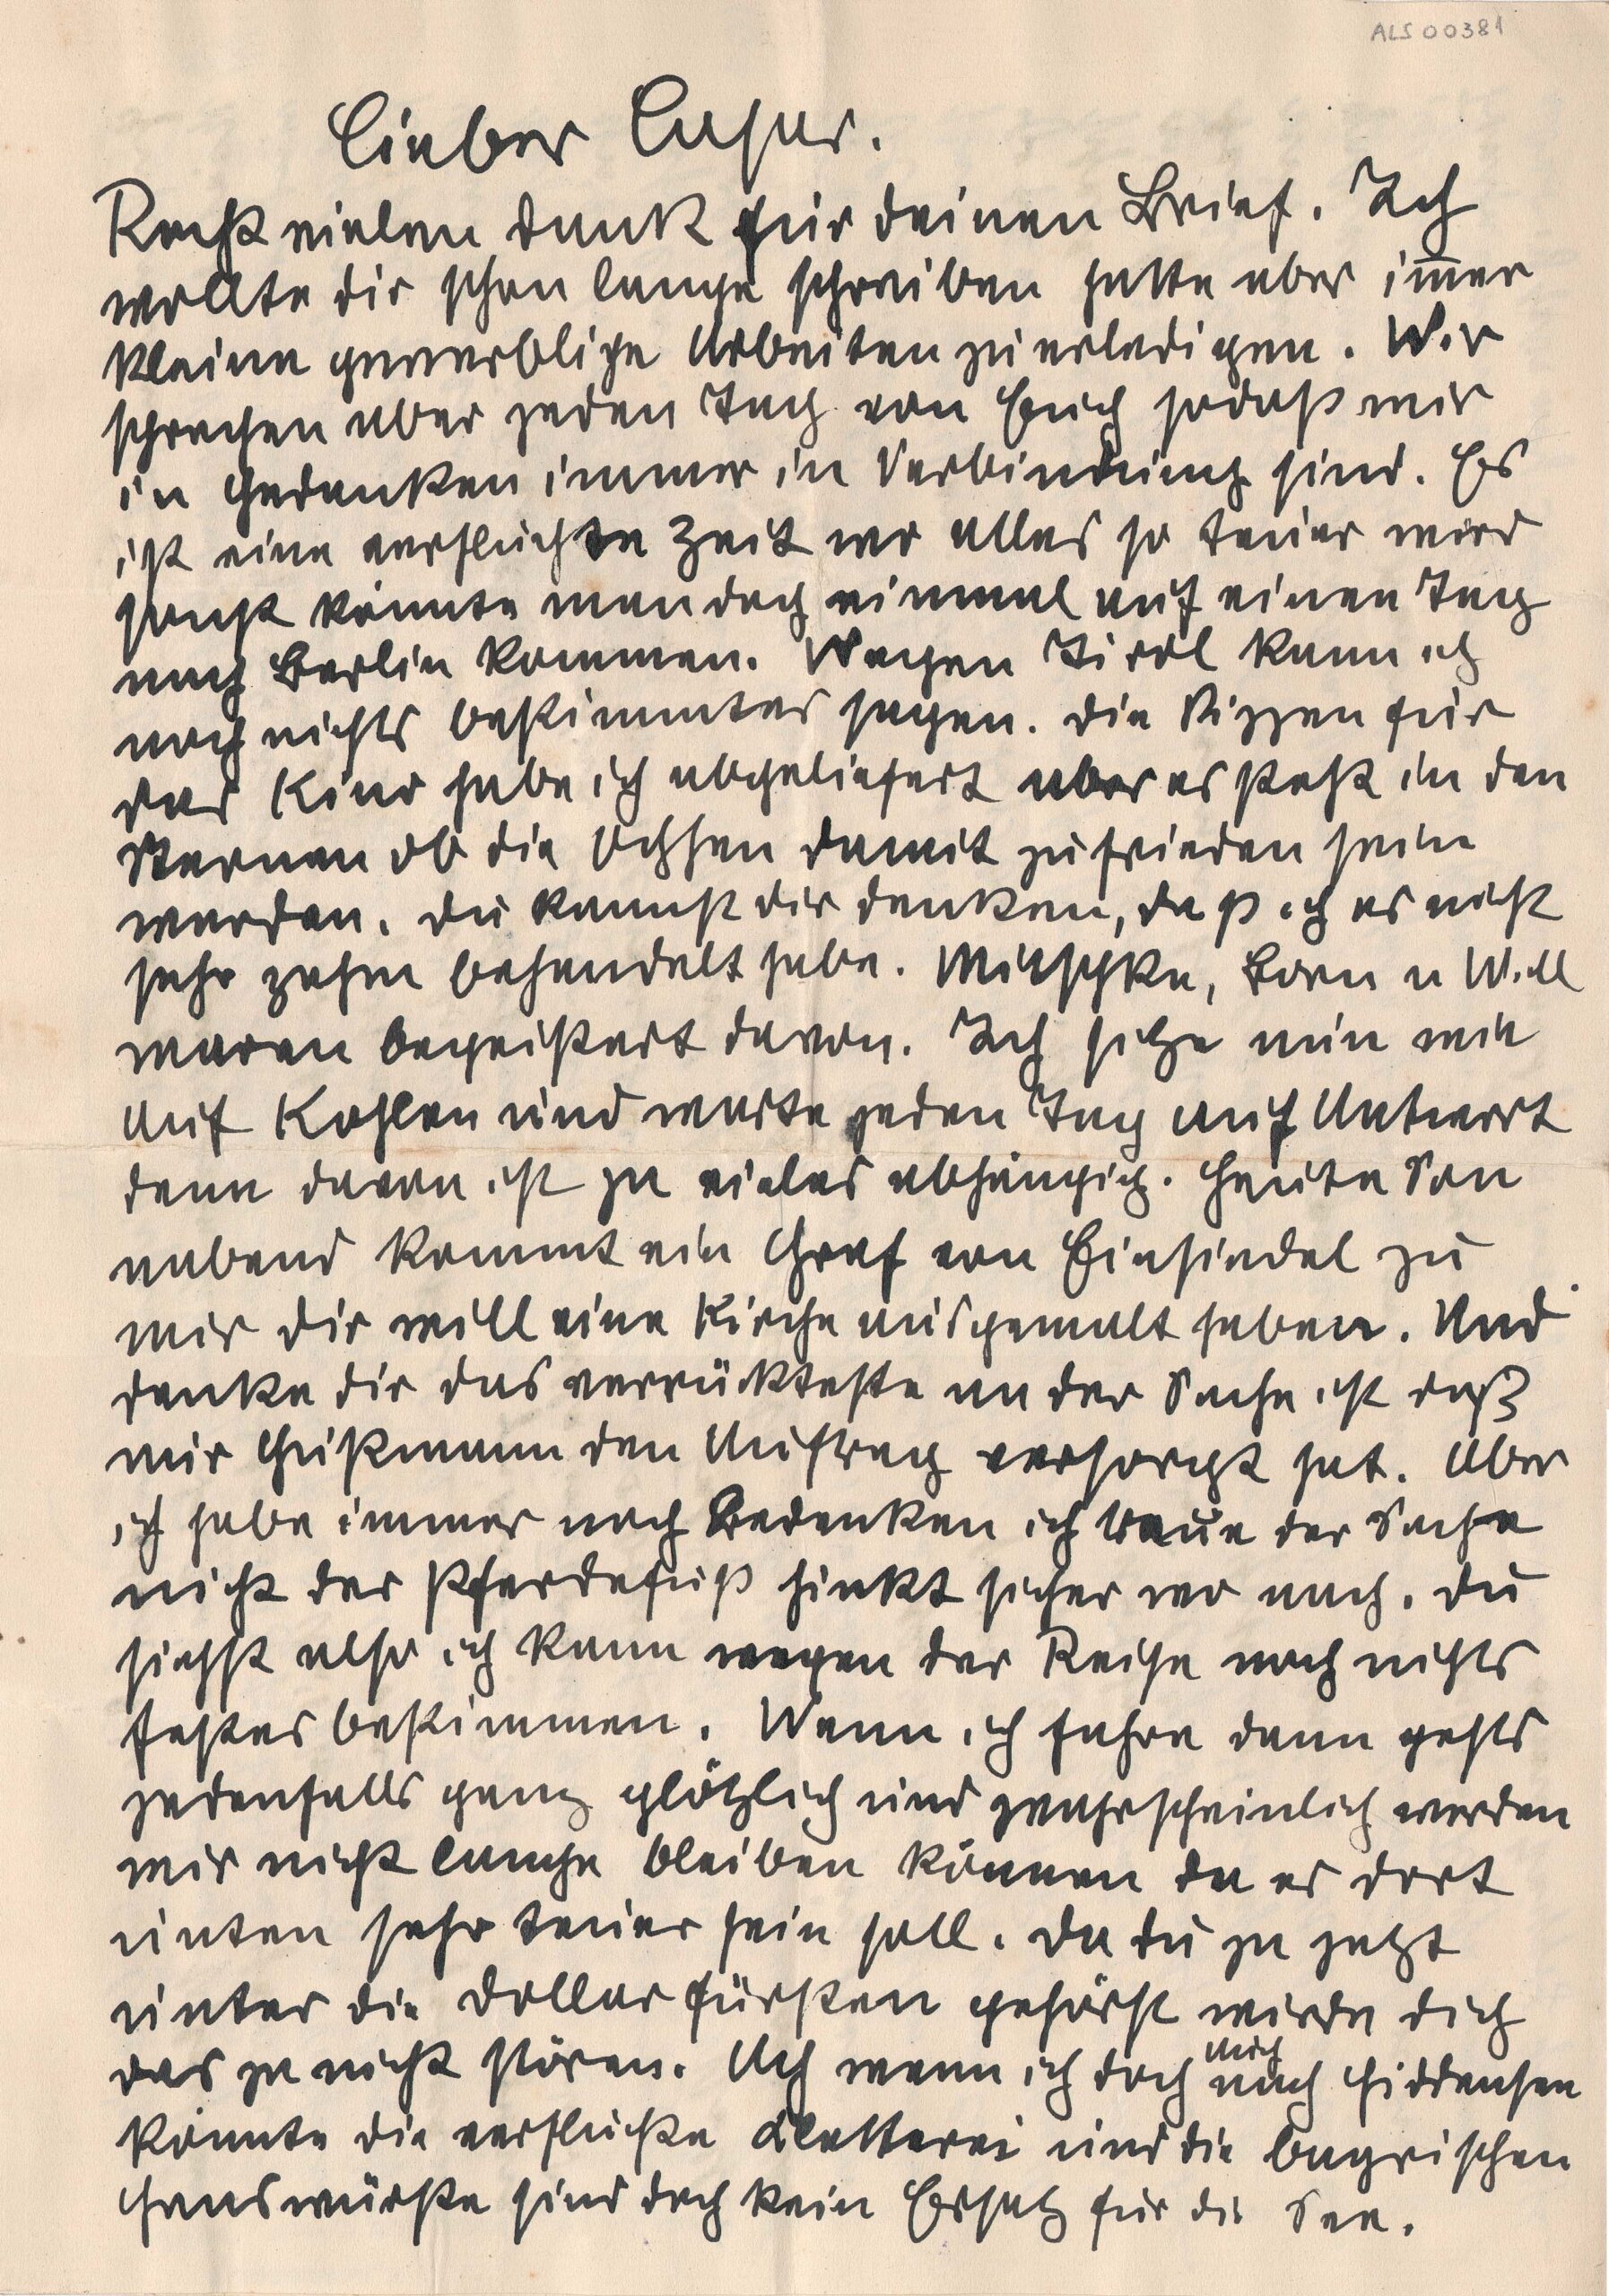 ALS 00381
Lieber Casar.
Recht vielen Dank für deinen Brief. Ich
wollte dir schon lange schreiben hatte aber im̅er
kleine gewerbliche Arbeiten zu erledigen. Wir
sprechen aber jeden Tag von Euch sodaß wir
in Gedanken immer in Verbindung sind. Es
ist eine verfluchte Zeit wo alles so teuer wird
sonst könnte man doch einmal auf einen Tag
nach Berlin kommen. Wegen Tirol kann ich
noch nichts bestimmtes sagen. Die Skizzen für
das Kino habe ich abgeliefert aber es steht in den
Sternen ob die Ochsen damit zufrieden sein
werden. Du kannst dir denken, daß ich es nicht
sehr zahm behandelt habe. Mitschke, Born u Will
waren begeistert davon. Ich sitze nun wie
auf Kohlen und warte jeden Tag auf Antwort
denn davon ist ja vieles abhängig. Heute Son
nabend kommt ein Graf von Einsiedel zu
mir dir will eine Kirche ausgemalt haben. Und
denke dir das verrückteste an der Sache ist daß
mir Gußmann den Auftrag versorgt hat. Aber
ich habe immer noch Bedenken ich traue der Sache
nicht der Pferdefuß hinkt sicher wo nach. Du
siehst also ich kann wegen der Reise noch nichts
festes bestimmen. Wenn ich fahre dann gehts
jedenfalls ganz plötzlich und wahrscheinlich werden
wir nicht lange bleiben können da es dort
unten sehr teuer sein soll. Da du ja jetzt
unter die Dollarfürsten gehörst wirde dich
das ja nicht stören. Ach wenn ich doch auch nach Hiddensee
könnte die verfluchte Kletterei und die bayrischen
Hanswürste sind doch kein Ersatz für die See.